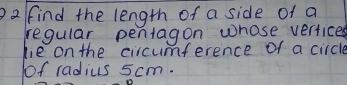 22 find the length of a side of a
regular pentagon whose vertices
lie on the circumference of a circle
of radius 5cm.